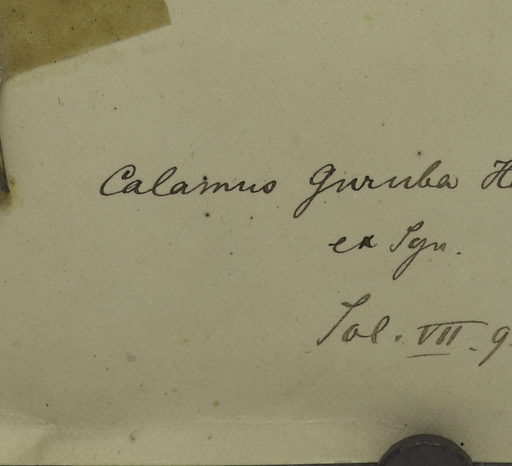 Calamus Guruba H
ex Syn.
Sol. VII. 9